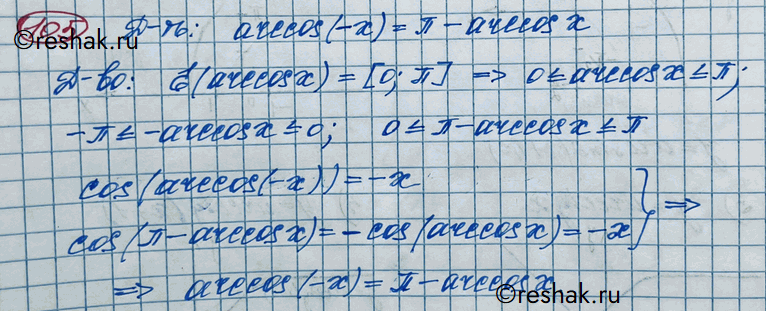 105 Д-ть: arccos(-x) = π - arccos x
©reshak.ru
Д-во: E(arccos x) = [0; π] => 0 ≤ arccos x ≤ π;
-π ≤ -arccos x ≤ 0; 0 ≤ π - arccos x ≤ π
cos(arccos(-x)) = -x
cos(π - arccos x) = -cos(arccos x) = -x } =>
=> arccos(-x) = π - arccos x
©reshak.ru